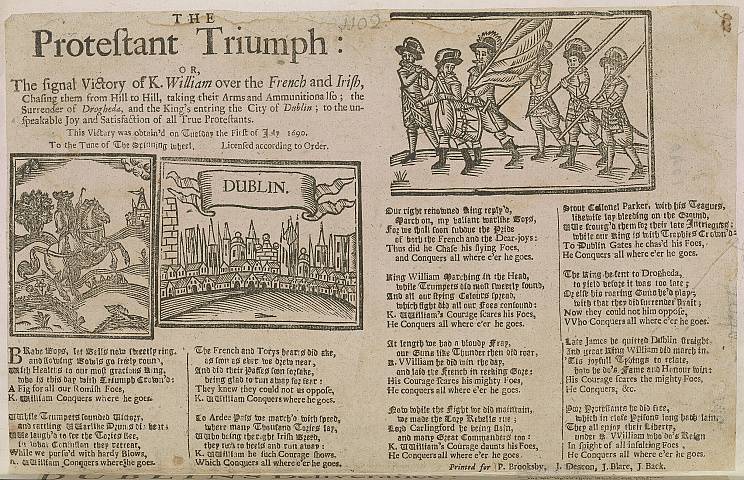 THE
Proteſtant Triumph:
OR,
The ſignal Victory of K. William over the French and Iriſh,
Chaſing them from Hill to Hill, taking their Arms and Ammunition alſo; the
Surrender of Drogheda, and the King's entring the City of Dublin; to the un-
ſpeakable Joy and Satisfaction of all True Proteſtants.
This Victory was obtain'd on Tueſday the Firſt of July 1690.
To the Tune of The Spinning wheel. Licenſed according to Order.
DUBLIN.
BRave Boys, let Bells now ſweetly ring,
and flowing Bowls go freely round,
With Healths to our moſt gracious King,
who is this day with Triumph Crown'd:
A Fig for all our Romiſh Foes,
K. William Conquers where he goes.
While Trumpets ſounded Victory,
and rattling Warlike Drums did beat:
We laugh'd to ſee the Tories flee,
in what Confuſion they retreat,
While we purſu'd with hardy Blows,
K. William Conquers where he goes.
The French and Torys hearts did ake,
as ſoon as ever we drew near,
And did their Paſſes ſoon forſake,
being glad to run away for fear:
They knew they could not us oppoſe,
K. William Conquers where he goes.
To Ardee Paſs we march'd with ſpeed,
where many Thouſand Tories lay,
Who being the right Iriſh Breed,
they turn'd heels and run away:
K. William he ſuch Courage ſhows.
Which Conquers all where e'er he goes.
Our right renowned King reply'd,
March on, my valiant warlike Boys,
For we ſhall ſoon ſubdue the Pride
of both the French and the Dear-joys:
Thus did he Chaſe his flying Foes,
and Conquers all where e'er he goes.
King William Marching in the Head,
while Trumpets did moſt ſweetly ſound,
And all our flying Colours ſpread,
which ſight did all our Foes confound:
K. William's Courage ſcares his Foes,
He Conquers all where e'er he goes.
At length we had a bloody Fray,
our Guns like Thunder then did roar,
K. William he did win the day,
and laid the French in reeking Gore:
His Courage ſcares his mighty Foes,
He conquers all where e'er he goes.
Now while the Fight we did maintain,
we made the Tory Rebels rue;
Lord Carlingford he being ſlain,
and many Great Commanders too:
K. William's Courage daunts his Foes,
He Conquers all where e'er he goes.
Stout Colonel Parker, with his Teagues,
likewiſe lay bleeding on the Ground,
We ſcourg'd them for their late Intriegues;
while our King is with Trophies Crown'd:
To Dublin Gates he chas'd his Foes,
He Conquers all where e'er he goes.
The King he ſent to Drogheda,
to yield before it was too late;
Or elſe his roaring Guns he'd play;
with that they did ſurrender ſtrait;
Now they could not him oppoſe,
Who Conquers all where e'er he goes.
Late James he quitted Dublin ſtraight
And great King William did march in,
'Tis joyfull Tydings to relate,
how he do's Fame and Honour win:
His Courage ſcares the mighty Foes,
He Conquers, &c.
Poor Proteſtants he did free,
which in cloſe Priſons long hath lain,
They all enjoy their Liberty,
under K William who do's Reign
In ſpight of all inſulting Foes,
He Conquers all where e'er he goes.
Printed for P. Brooksby, J. Deacon, J. Blare, J. Back.